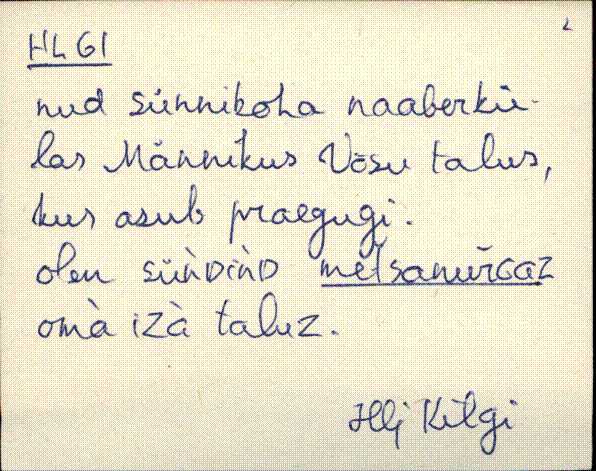 2
HLGI
nud sünnikoha naaberkü-
las Männikus Võsu talus,
kus asub praegugi.
olen sǜǸDìǸD mètsanuřGaz
omà izà taluz.
Illi Kilgi